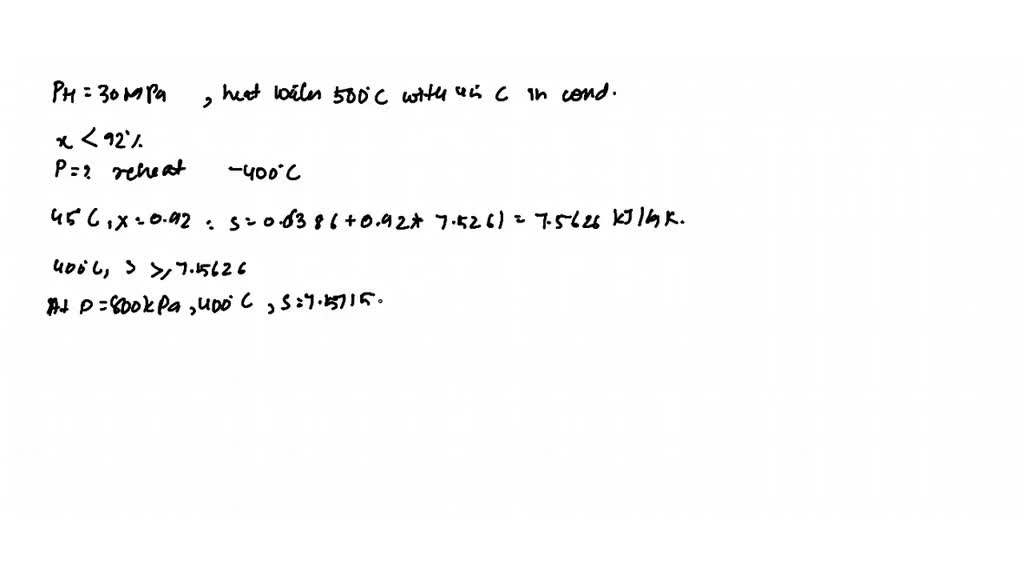 PH = 30 MPa , heat boiler 500°C with 45 C in cond.
x < 92%
P = ? reheat -400°C
45 C, x = 0.92 : s = 0.6386 + 0.92 * 7.5261 = 7.5626 kJ/kg K.
400°C, s >, 7.5626
At P = 800kPa, 400°C, s = 7.5715.